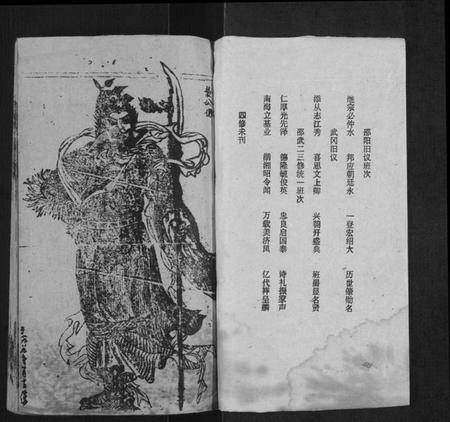 邵阳旧议班次
继宗必仲水 邦应朝廷永 一登宏绍大 历世肇勋名
武冈旧议
添从志江秀 喜思文上卿 兴朝开盛典 班爵显名贤
邵武二三修统一班次
仁厚光先泽 德隆毓俊英 忠良启国泰 诗礼振家声
南海立基业 湖湘昭令闻 万载美济凤 亿代祥呈麟
四修未刊